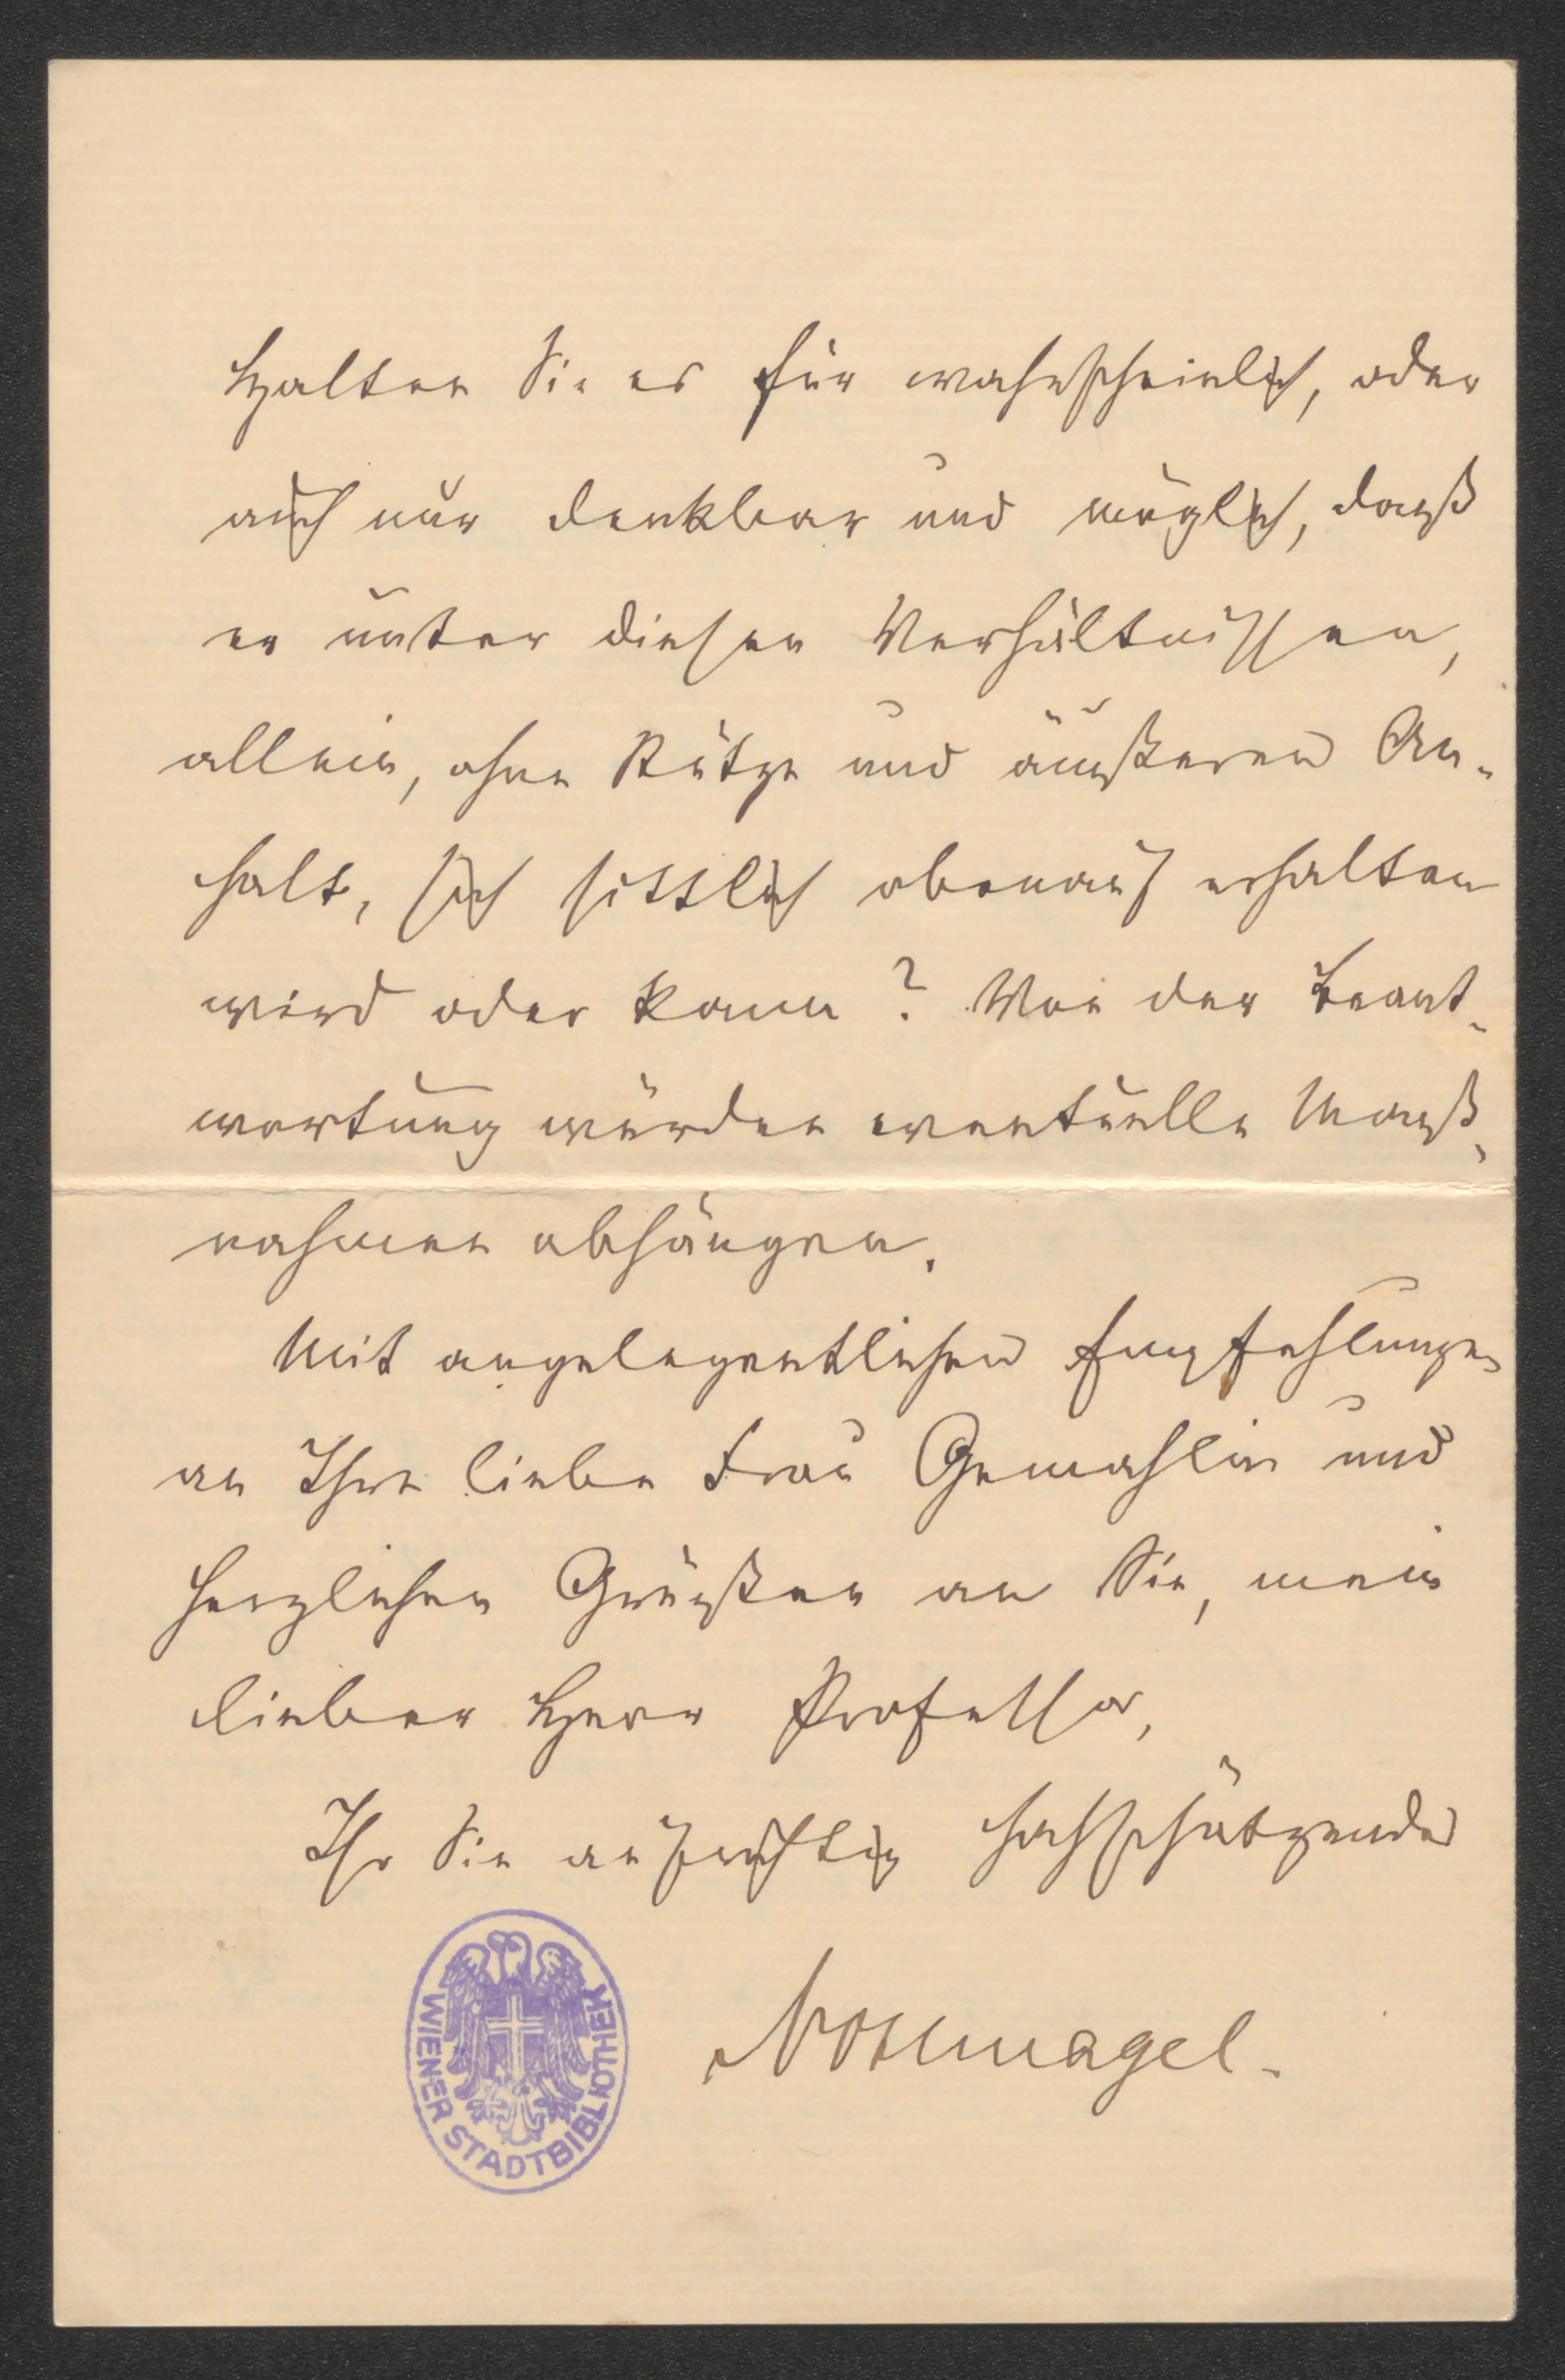 Halten Sie es für wahrscheinlich, oder
auch nur denkbar und möglich, daß
er unter diesen Verhältnissen,
allein, ohne Stütze und äußeren An-
halt, sich sittlich obenauf erhalten
wird oder kann? Von der Beant-
wortung würden eventuelle Maß-
nahmen abhängen.
Mit angelegentlichen Empfehlungen
an Ihre liebe Frau Gemahlin und
herzlichen Grüßen an Sie, mein
lieber Herr Professor,
Ihr Sie aufrichtig hochschätzender
Nothnagel.
WIENER STADTBIBLIOTHEK